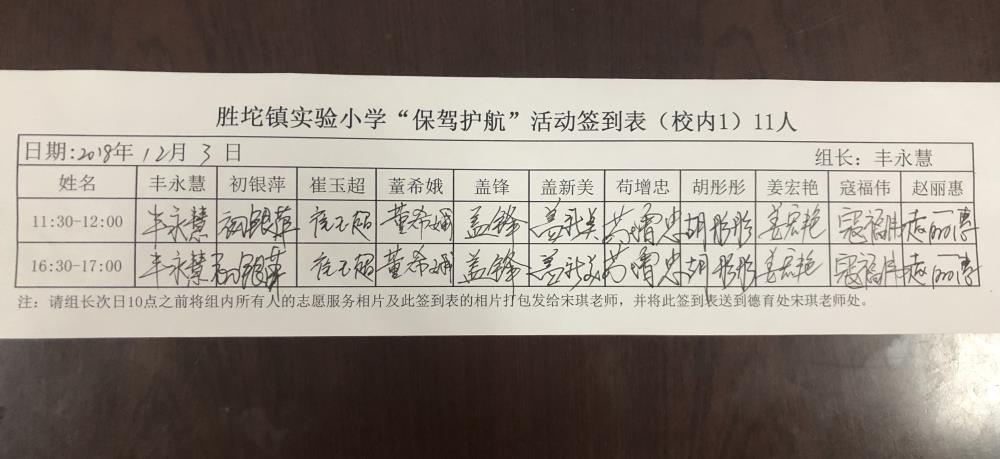 胜坨镇实验小学“保驾护航”活动签到表（校内1）11人
日期:2018年 12月 3 日 组长：丰永慧
姓名 丰永慧 初银萍 崔玉超 董希娥 盖锋 盖新美 苟增忠 胡彤彤 姜宏艳 寇福伟 赵丽惠
11:30-12:00 丰永慧 初银萍 崔玉超 董希娥 盖锋 盖新美 苟增忠 胡彤彤 姜宏艳 寇福伟 赵丽惠
16:30-17:00 丰永慧 初银萍 崔玉超 董希娥 盖锋 盖新美 苟增忠 胡彤彤 姜宏艳 寇福伟 赵丽惠
注：请组长次日10点之前将组内所有人的志愿服务相片及此签到表的相片打包发给宋琪老师，并将此签到表送到德育处宋琪老师处。